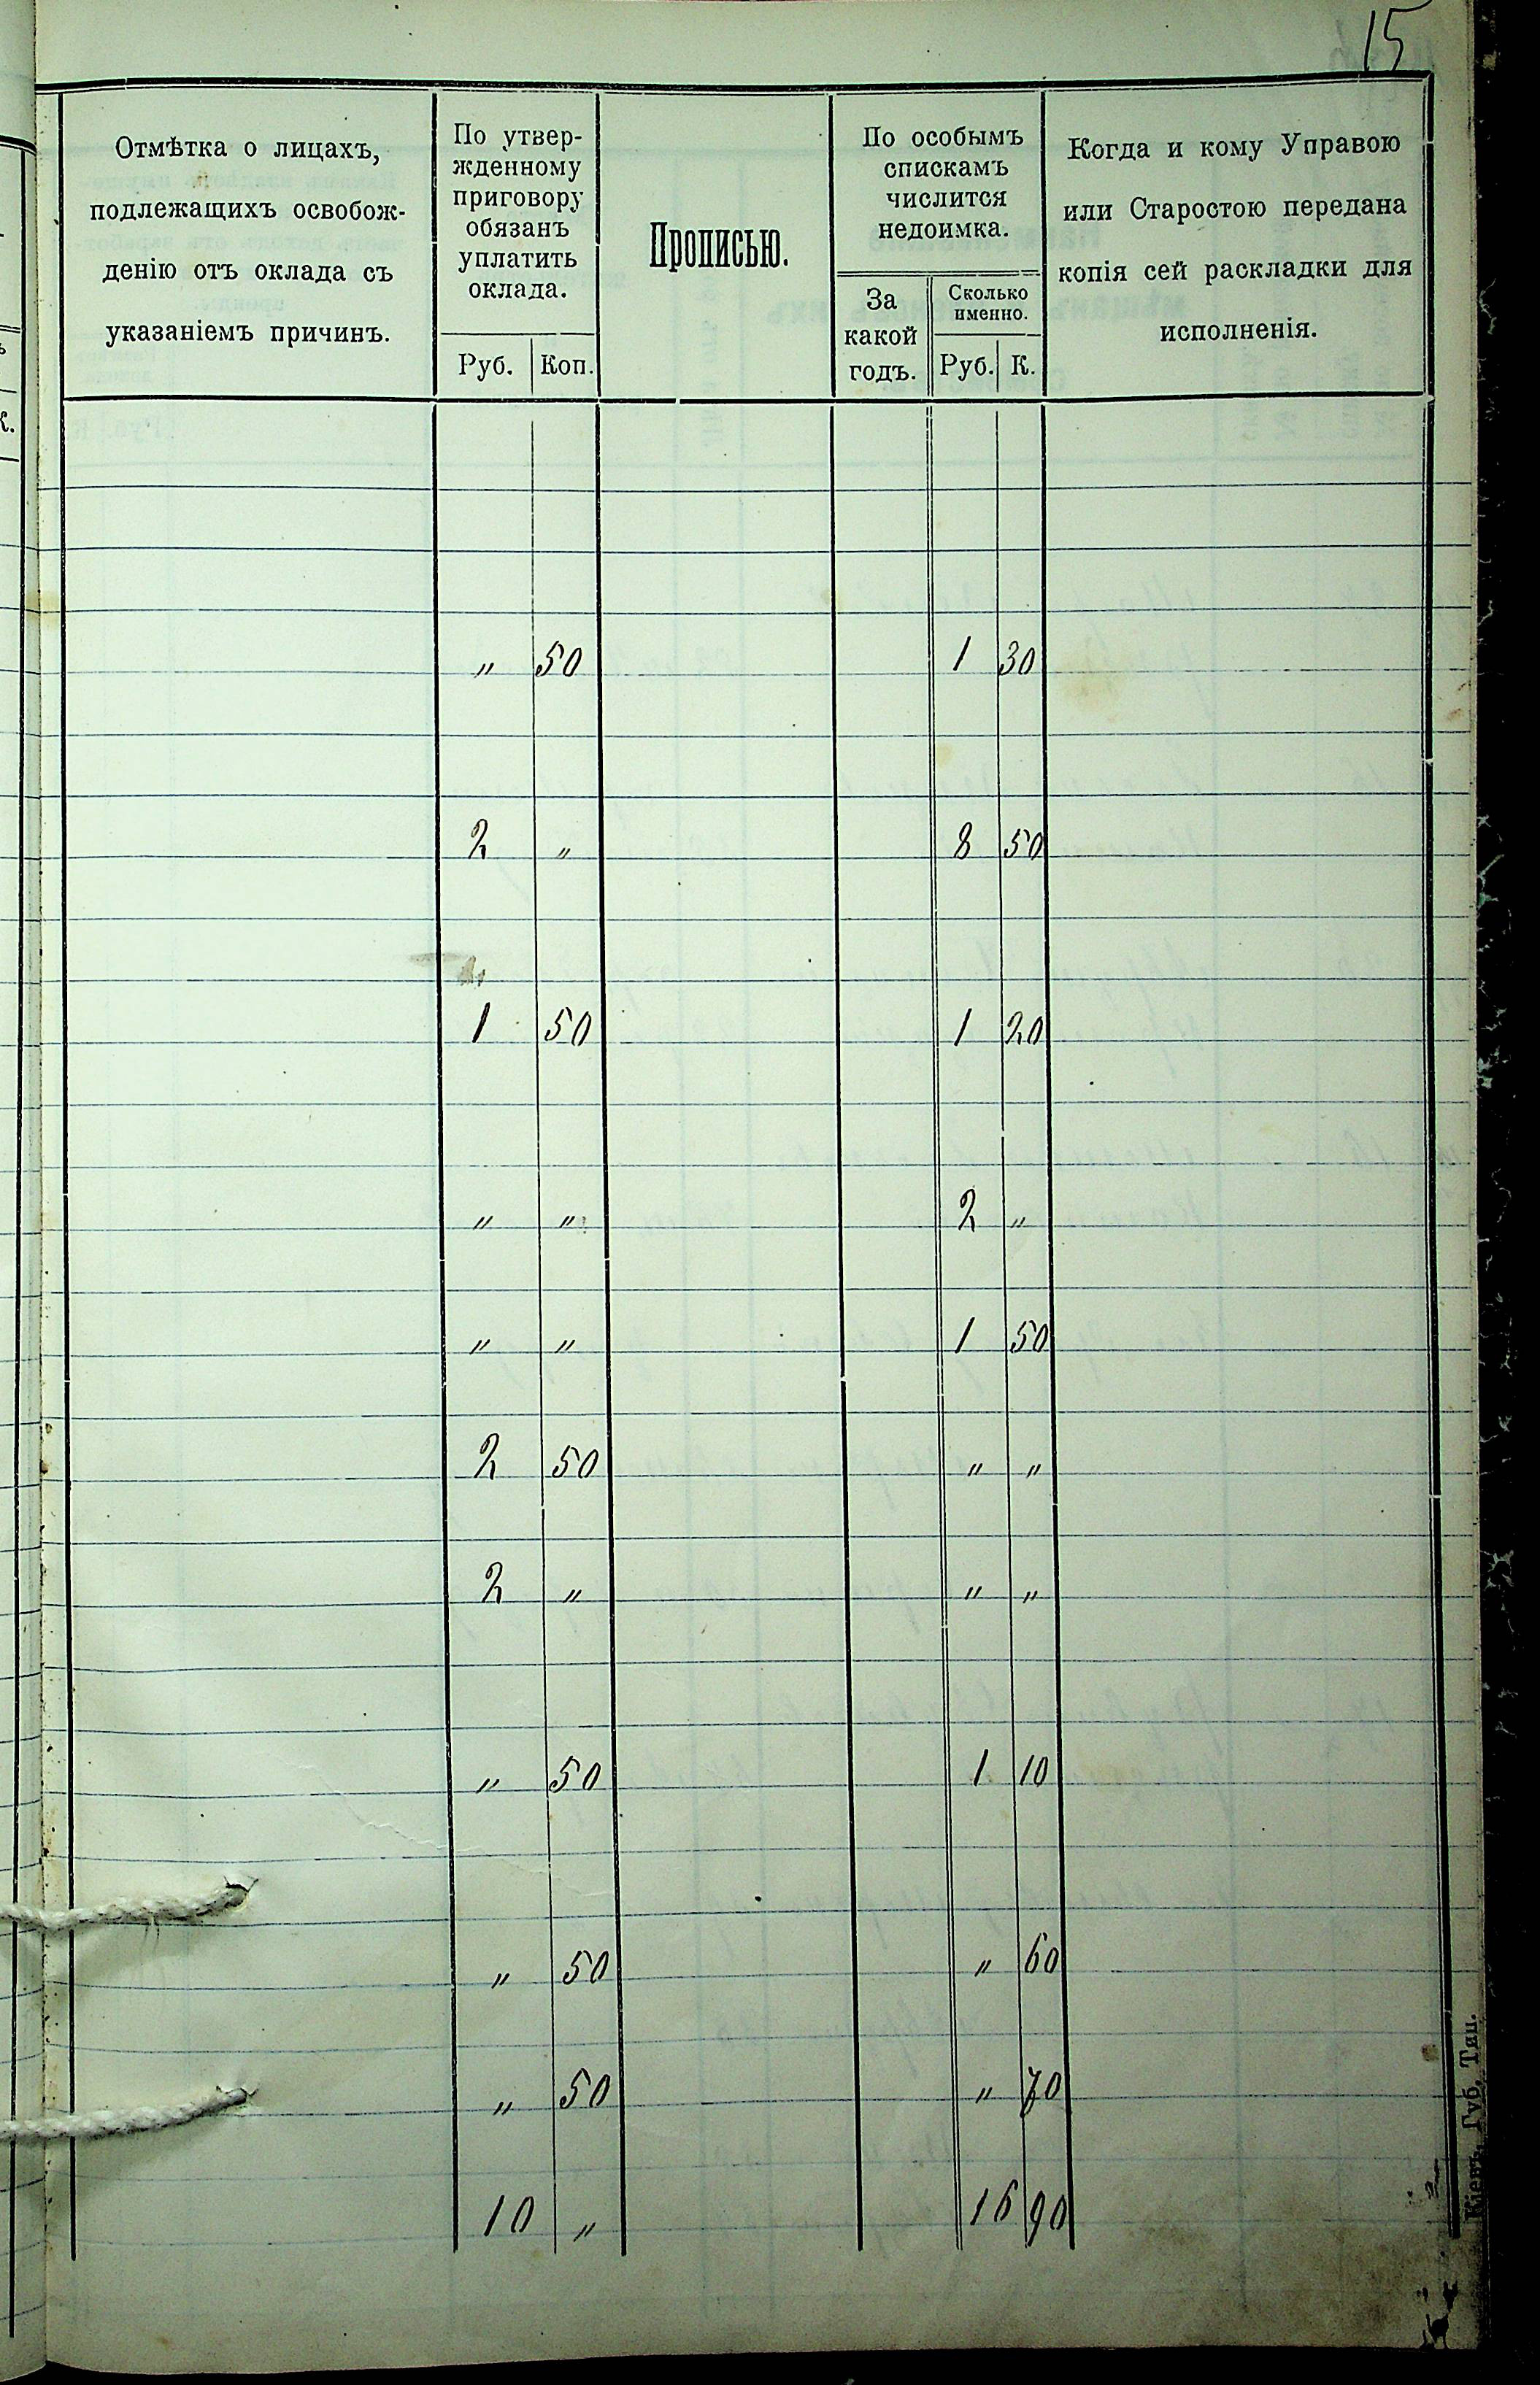 15
Отмѣтка о лицахъ,
подлежащихъ освобож-
денію отъ оклада съ
указаніемъ причинъ.
По утвер-
жденному
приговору
обязанъ
уплатить
оклада.
Руб. Коп.
Прописью.
По особымъ
спискамъ
числится
недоимка.
За
какой
годъ.
Сколько
именно.
Руб. К.
Когда и кому Управою
или Старостою передана
копія сей раскладки для
исполненія.
К.
" 50 1 30
2 " 8 50
1 50 1 20
" " 2 "
" " 1 50
2 50 " "
2 " " "
" 50 1 10
" 50 " 60
" 50 " 70
10 " 16 90
Кіевъ, Губ. Тип.